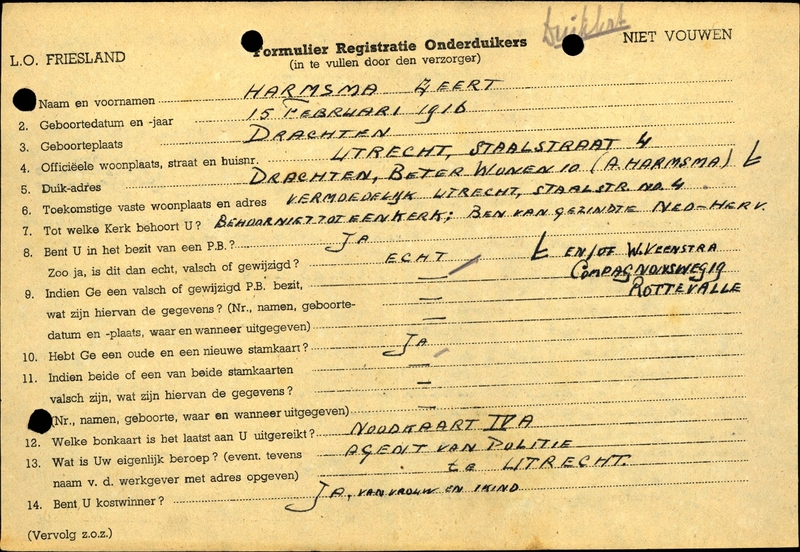 Duikhot
L.O. FRIESLAND
Formulier Registratie Onderduikers
NIET VOUWEN
(in te vullen door den verzorger)
Naam en voornamen HARMSMA GEERT
2. Geboortedatum en -jaar 15 FEBRUARI 1916
3. Geboorteplaats DRACHTEN
4. Officiëele woonplaats, straat en huisnr. UTRECHT, STAALSTRAAT 4
5. Duik-adres DRACHTEN, BETER WONEN 10 (A. HARMSMA)
6. Toekomstige vaste woonplaats en adres VERMOEDELIJK UTRECHT, STAALSTR. NO. 4
7. Tot welke Kerk behoort U? BEHOOR NIET TOT EEN KERK; BEN VAN GEZINDTE NED-HERV.
8. Bent U in het bezit van een P.B.? JA
Zoo ja, is dit dan echt, valsch of gewijzigd? ECHT
EN/OF W. VEENSTRA
COMPAGNONSWEG 19
ROTTEVALLE
9. Indien Ge een valsch of gewijzigd P.B. bezit, —
wat zijn hiervan de gegevens? (Nr., namen, geboorte- —
datum en -plaats, waar en wanneer uitgegeven) —
10. Hebt Ge een oude en een nieuwe stamkaart? JA
11. Indien beide of een van beide stamkaarten —
valsch zijn, wat zijn hiervan de gegevens? —
(Nr., namen, geboorte, waar en wanneer uitgegeven) —
12. Welke bonkaart is het laatst aan U uitgereikt? NOODKAART IVA
13. Wat is Uw eigenlijk beroep? (event. tevens AGENT VAN POLITIE
naam v. d. werkgever met adres opgeven) te UTRECHT.
14. Bent U kostwinner? JA, VAN VROUW EN 1 KIND
(Vervolg z.o.z.)